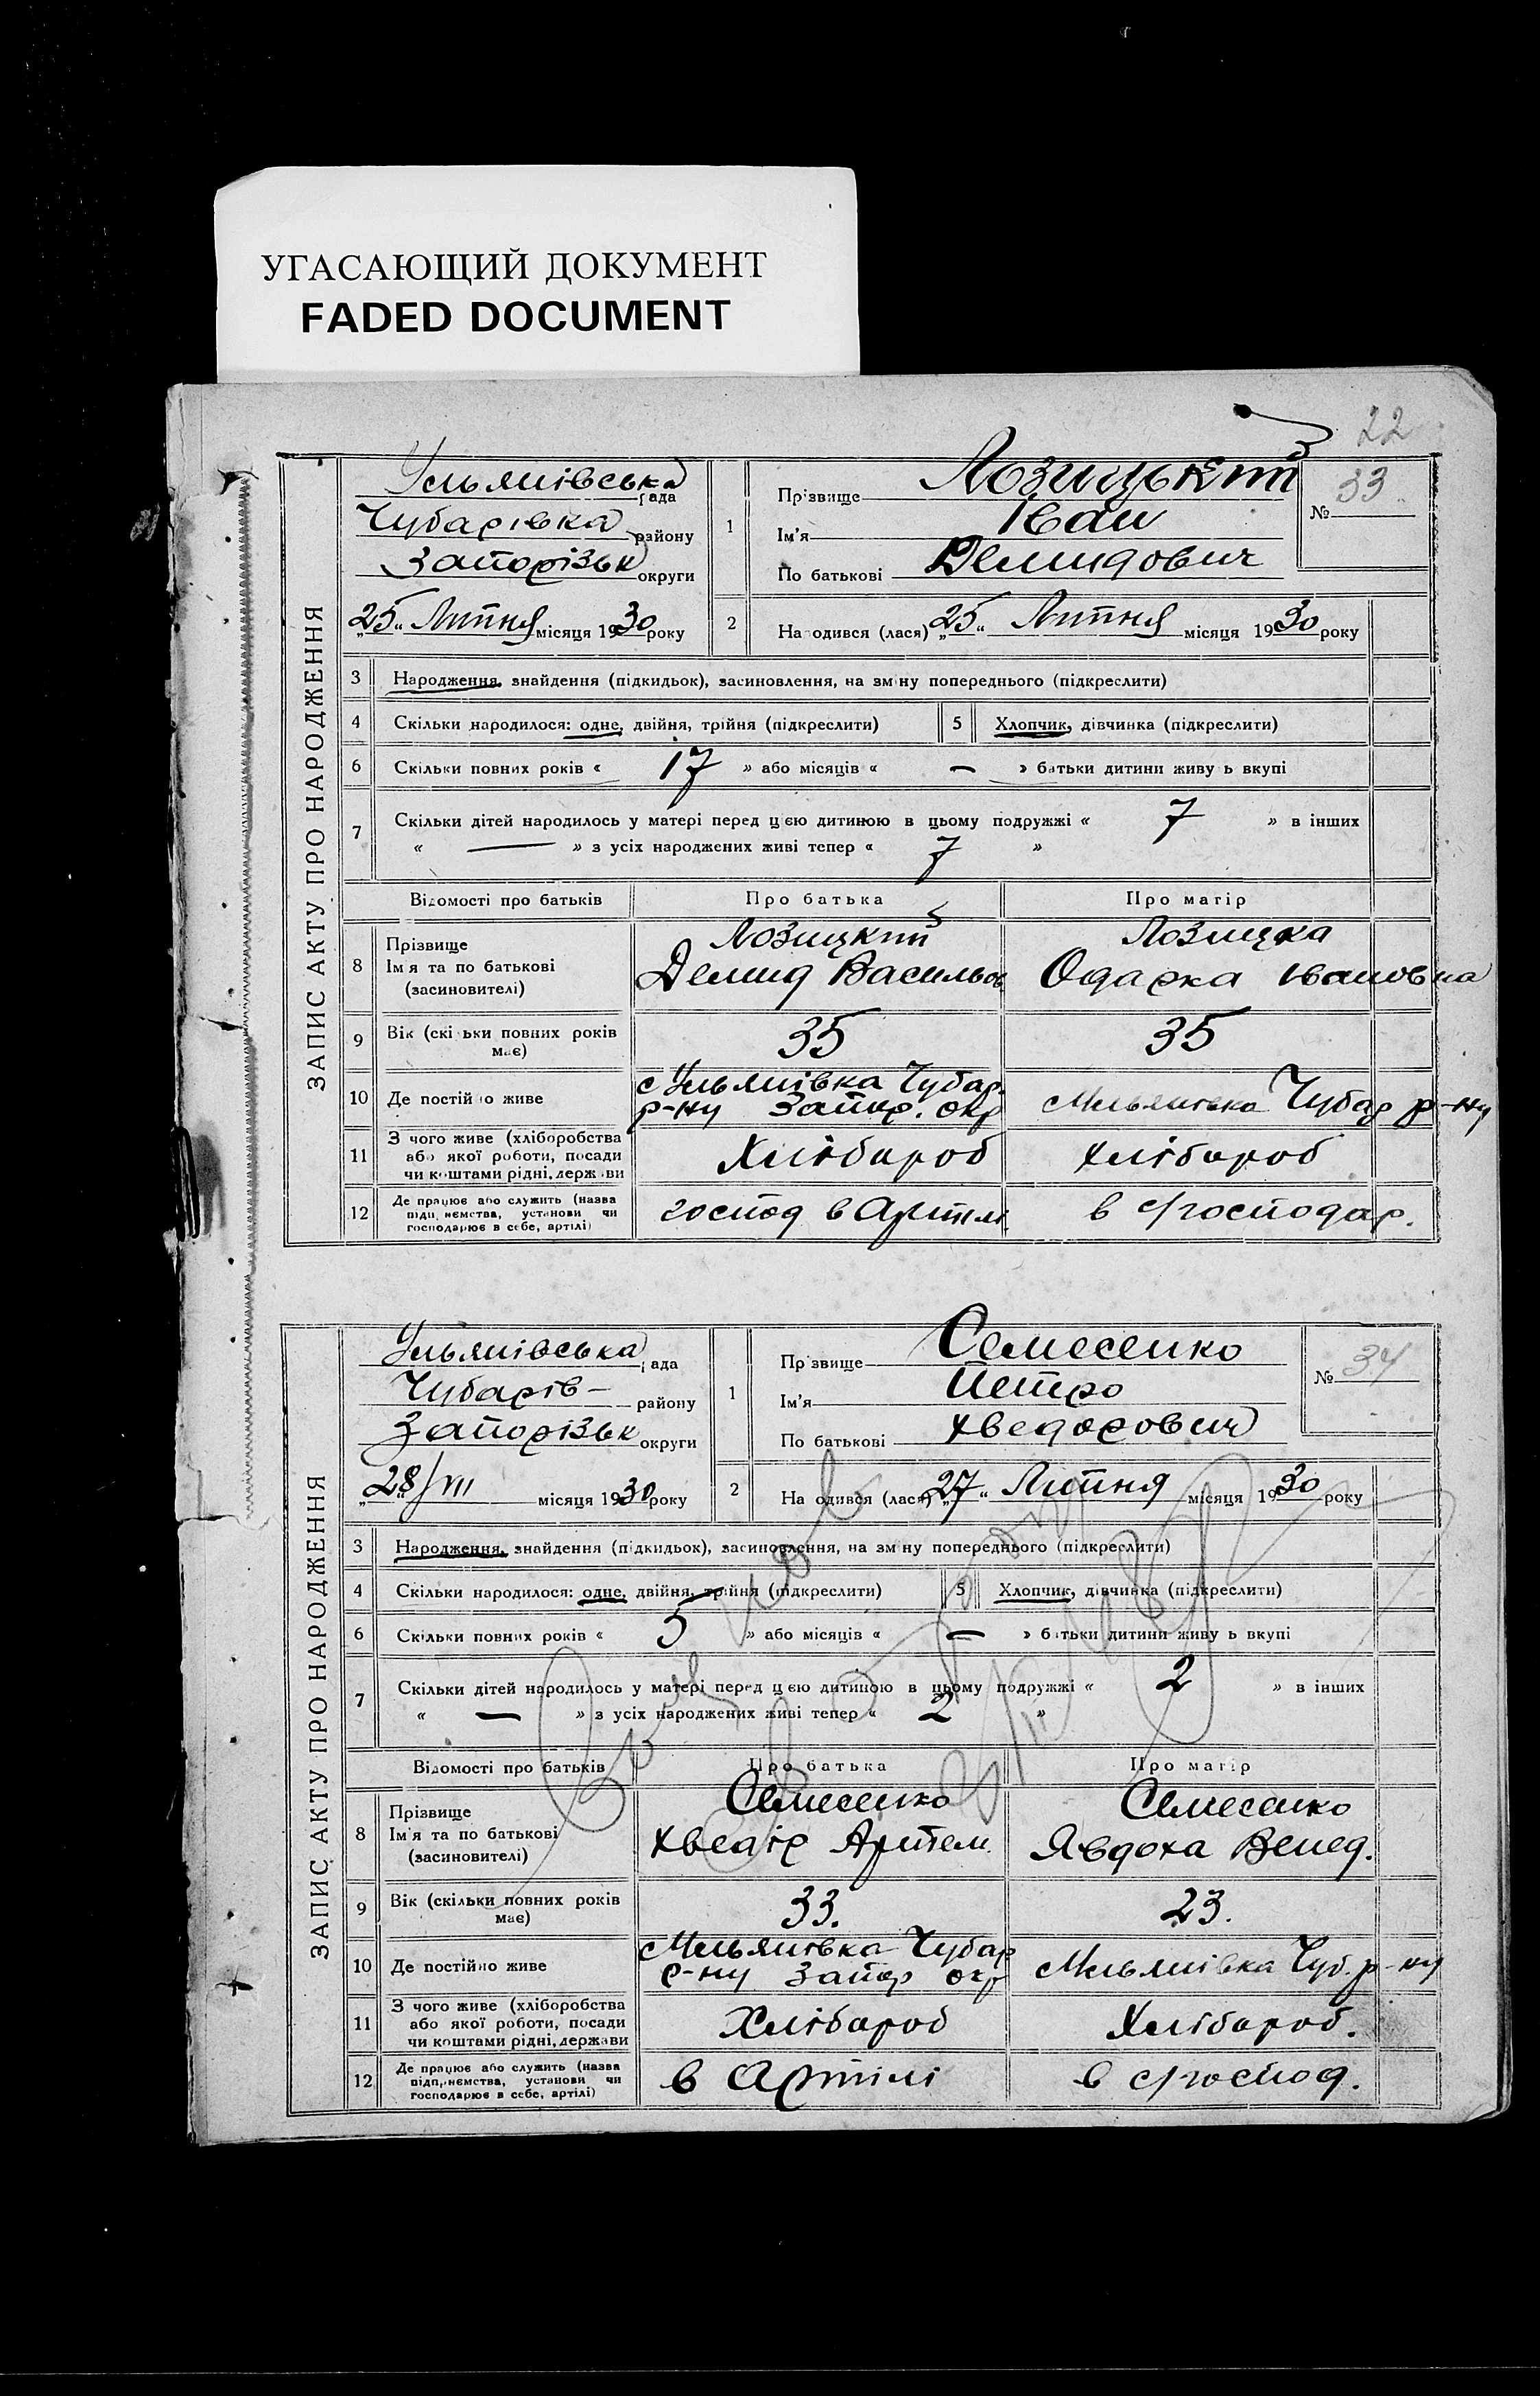 УГАСАЮЩИЙ ДОКУМЕНТ
FADED DOCUMENT
22
ЗАПИС АКТУ ПРО НАРОДЖЕННЯ
Ульянівська рада
Чубарівка району
Запорізьк округи
1
Прізвище Лозицький
Ім'я Іван
По батькові Демидович
№ 33
„25“ Липня місяця 1930 року
2
Народився (лася) „25“ Липня місяця 1930 року
3 Народження, знайдення (підкидьок), засиновлення, на зміну попереднього (підкреслити)
4 Скільки народилося: одне, двійня, трійня (підкреслити)
5 Хлопчик, дівчинка (підкреслити)
6 Скільки повних років « 17 » або місяців « — » батьки дитини живуть вкупі
7 Скільки дітей народилось у матері перед цією дитиною в цьому подружжі « 7 » в інших
« — » з усіх народжених живі тепер « 7 »
Відомості про батьків Про батька Про матір
8 Прізвище Лозицкий Лозицка
Ім'я та по батькові Демид Васильов Одарка Івановна
(засиновителі)
9 Вік (скільки повних років має) 35 35
10 Де постійно живе
с Ульянівка Чубар.
р-ну Запор. окр
с Ульянівка Чубар р-ну
11 З чого живе (хліборобства
або якої роботи, посади
чи коштами рідні, держави
Хлібароб Хлібароб
12 Де працює або служить (назва
підприємства, установи чи
господарює в себе, артілі)
господ в Артілі в с/господар.
ЗАПИС АКТУ ПРО НАРОДЖЕННЯ
Ульянівська рада
Чубарів- району
Запорізьк округи
1
Прізвище Семесенко
Ім'я Петро
По батькові Хведорович
№ 34
„28/VII місяця 1930 року
2
Народився (лася) „27“ Липня місяця 1930 року
3 Народження, знайдення (підкидьок), засиновлення, на зміну попереднього (підкреслити)
4 Скільки народилося: одне, двійня, трійня (підкреслити)
5 Хлопчик, дівчинка (підкреслити)
6 Скільки повних років « 5 » або місяців « — » батьки дитини живуть вкупі
7 Скільки дітей народилось у матері перед цією дитиною в цьому подружжі « 2 » в інших
« — » з усіх народжених живі тепер « 2 »
Відомості про батьків Про батька Про матір
8 Прізвище Семесенко Семесенко
Ім'я та по батькові Хведір Артем. Явдоха Венед.
(засиновителі)
9 Вік (скільки повних років має) 33. 23.
10 Де постійно живе
с Ульянівка Чубар
р-ну Запор окр
с Ульянівка Чуб. р-ну
11 З чого живе (хліборобства
або якої роботи, посади
чи коштами рідні, держави
Хлібароб Хлібароб.
12 Де працює або служить (назва
підприємства, установи чи
господарює в себе, артілі)
в Артілі в с/господ.